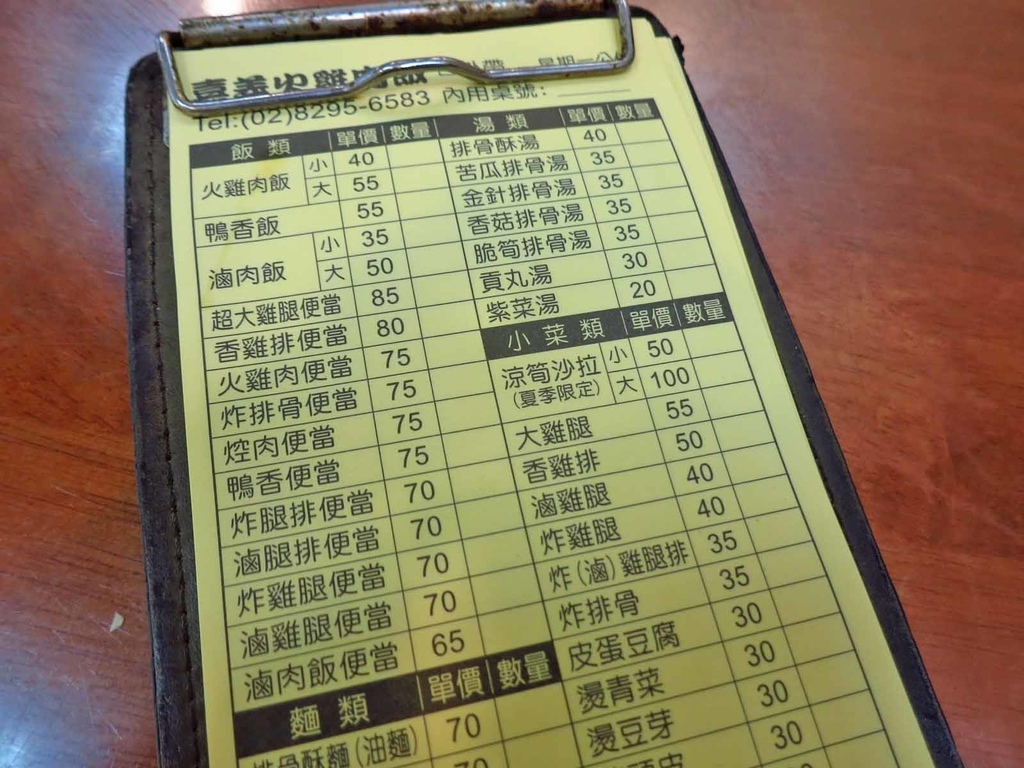 嘉義火雞肉飯
Tel:(02)8295-6583 內用桌號:
飯類 單價 數量
火雞肉飯 小 40
大 55
鴨香飯 55
滷肉飯 小 35
大 50
超大雞腿便當 85
香雞排便當 80
火雞肉便當 75
炸排骨便當 75
焢肉便當 75
鴨香便當 75
炸腿排便當 70
滷腿排便當 70
炸雞腿便當 70
滷雞腿便當 70
滷肉飯便當 65
麵類 單價 數量
排骨酥麵(油麵) 70
70
湯類 單價 數量
排骨酥湯 40
苦瓜排骨湯 35
金針排骨湯 35
香菇排骨湯 35
脆筍排骨湯 35
貢丸湯 30
紫菜湯 20
小菜類 單價 數量
涼筍沙拉 小 50
(夏季限定) 大 100
大雞腿 55
香雞排 50
滷雞腿 40
炸雞腿 40
炸(滷)雞腿排 35
炸排骨 35
皮蛋豆腐 30
燙青菜 30
燙豆芽 30
30